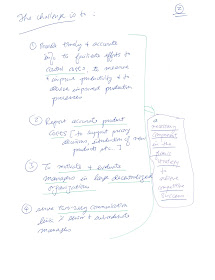 The challenge is to :
②
① Provide timely & accurate
info to facilitate efforts to
control costs, to measure
& improve productivity & to
devise improved production
processes
② Report accurate product
costs [to support pricing
decisions, introduction of new
products etc..]
③ To motivate & evaluate
managers in large decentralized
organizations
④ serve two-way communication
link b/w senior & subordinate
managers
a
necessary
component
in the
firm's
strategy
to
achieve
competitive
success